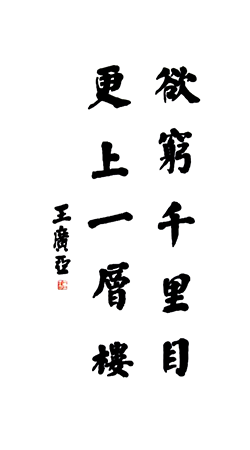 欲窮千里目
更上一層樓
王廣亞